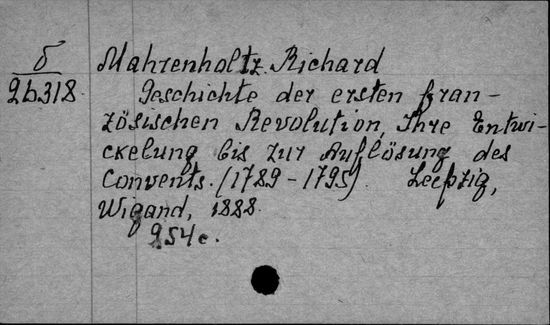 б Mahrenholtz Richard
26318 Geschichte der ersten fran-
zösischen Revolution, Ihre Entwi-
ckelung bis zur Auflösung des
Convents. (1789-1795). Leipzig,
Wigand, 1888.
954 c.